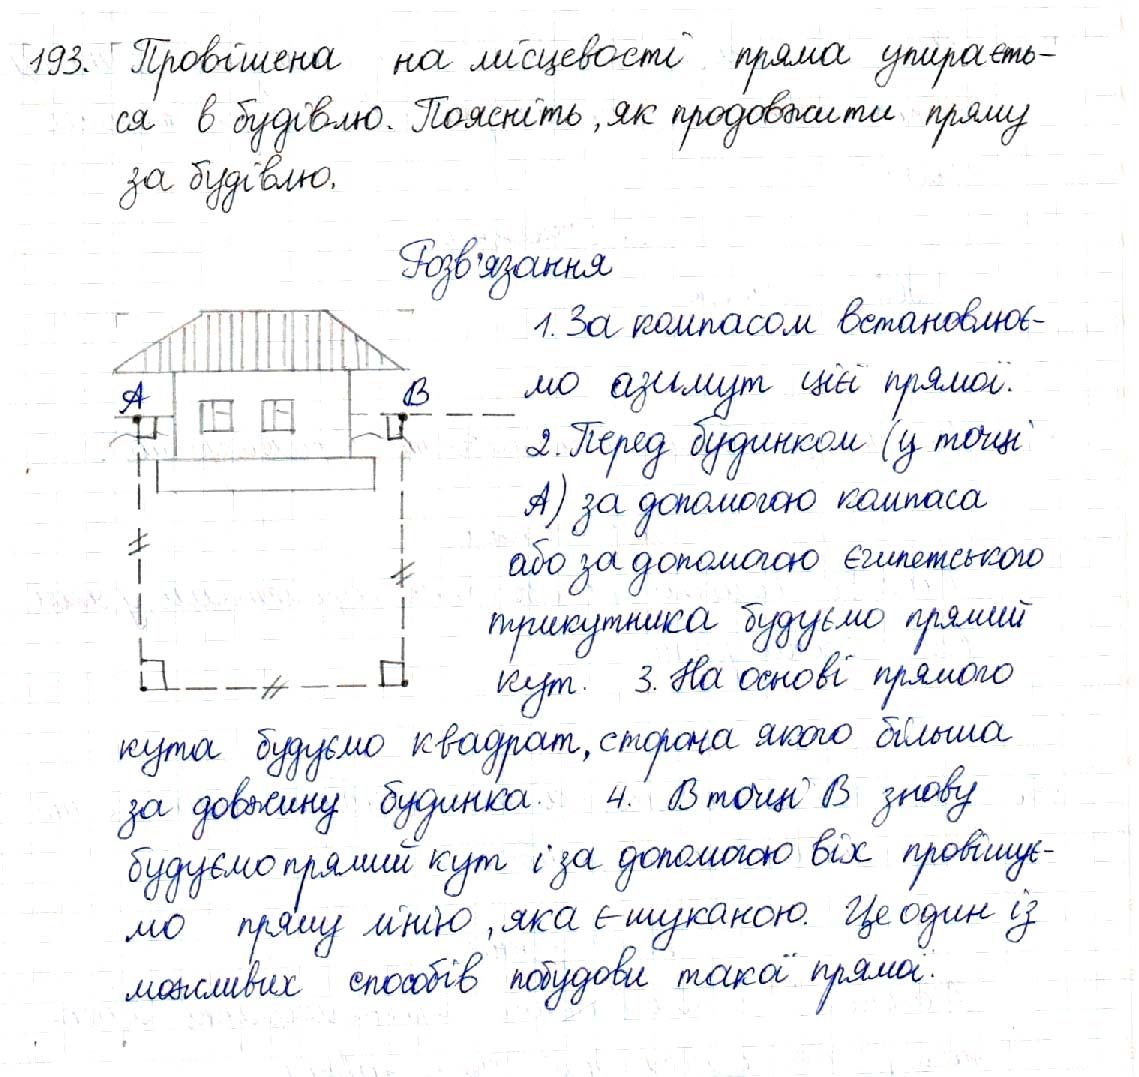 193. Провішена на місцевості пряма упираєть-
ся в будівлю. Поясніть, як продовжити пряму
за будівлю.
Розв'язання
1. За компасом встановлює-
мо азимут цієї прямої.
2. Перед будинком (у точці
А) за допомогою компаса
або за допомогою єгипетського
трикутника будуємо прямий
кут. 3. На основі прямого
кута будуємо квадрат, сторона якого більша
за довжину будинка. 4. В точці В знову
будуємо прямий кут і за допомогою віх провішує-
мо пряму лінію, яка є шуканою. Це один із
можливих способів побудови такої прямої.
А
В